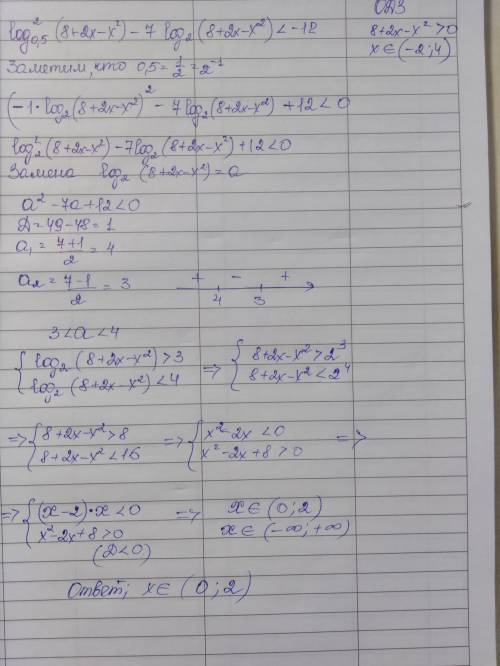 ОДЗ
log²₀,₅ (8+2x-x²) - 7 log₂ (8+2x-x²) < -12
8+2x-x² > 0
Заметим, что 0,5 = 1/2 = 2⁻¹
x ∈ (-2; 4)
(-1·log₂(8+2x-x²)² - 7log₂(8+2x-x²) + 12 < 0
log²₂(8+2x-x²) - 7log₂(8+2x-x²) + 12 < 0
Замена log₂ (8+2x-x²) = a
a² - 7a + 12 < 0
D = 49 - 48 = 1
a₁ = (7+1)/2 = 4
a₂ = (7-1)/2 = 3
+ - +
4 3
3 < a < 4
{ log₂ (8+2x-x²) > 3 => { 8+2x-x² > 2³
log₂ (8+2x-x²) < 4 8+2x-x² < 2⁴
=> { 8+2x-x² > 8 => { x² - 2x < 0 =>
8+2x-x² < 16 x² - 2x + 8 > 0
=> { (x-2)·x < 0 => x ∈ (0; 2)
x² - 2x + 8 > 0 x ∈ (-∞; +∞)
(D < 0)
Ответ; x ∈ (0; 2)